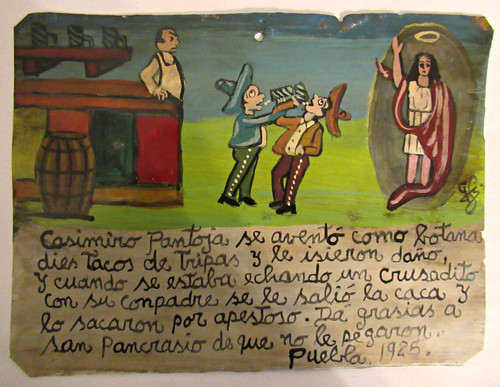 Casimiro Pantoja se aventó como botana
dies tacos de tripas y le isieron daño,
y cuando se estaba echando un crusadito
con su conpadre se le salió la caca y
lo sacaron por apestoso. Da grasias a
san Pancrasio de que no le pegaron.
Puebla, 1925.